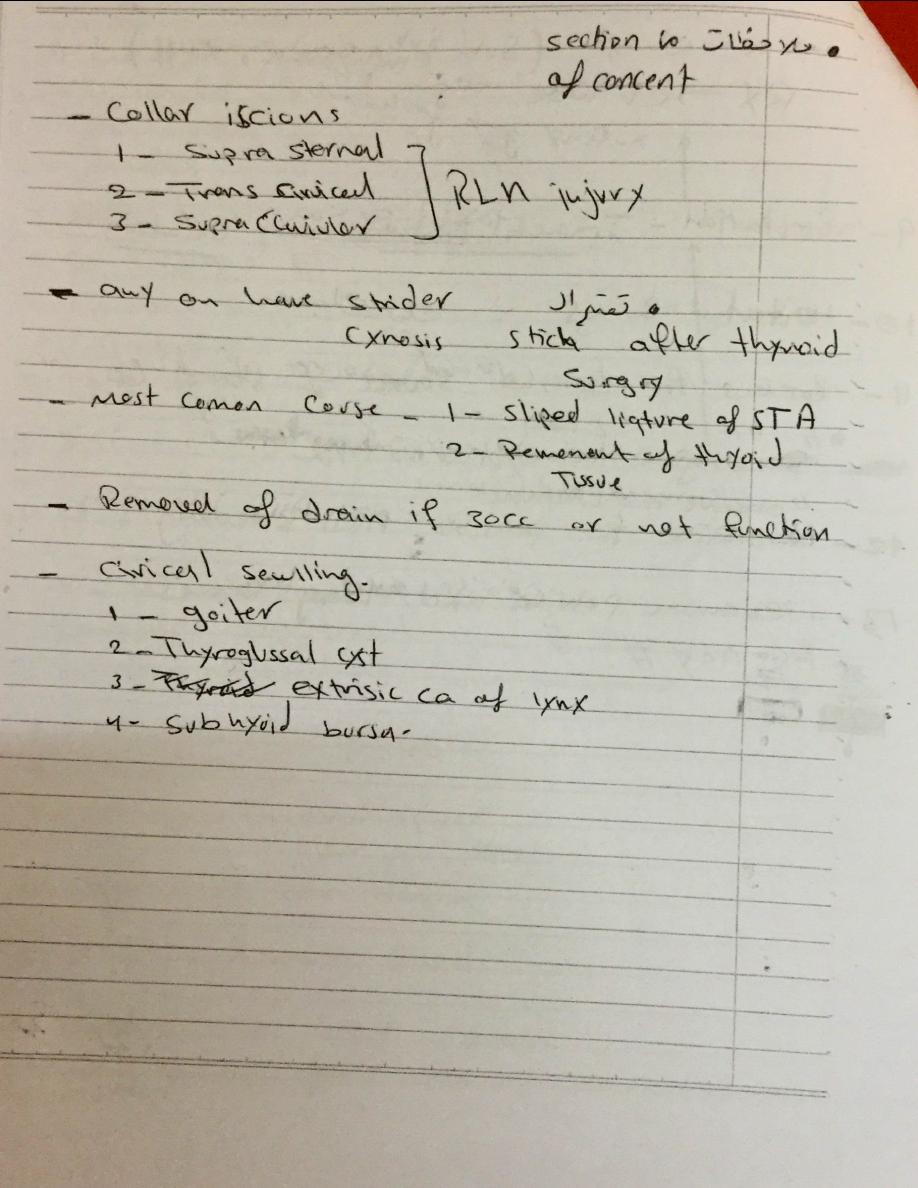 • ملاحظات to section
of concent
- Collar iscions
1 - Supra sternal
2 - Trans Civical
3 - Supra Claivular
RLN injury
- any on have strider
Cynosis stich after thyroid
Surgry
- Most Comon Couse - 1 - sliped ligture of STA
2 - Remenant of thyoid
Tissue
- Removed of drain if 30cc or not function
- Civical sewlling.
1 - goiter
2 - Thyroglssal cyst
3 - extrisic ca of lynx
4 - Subhyoid bursa.